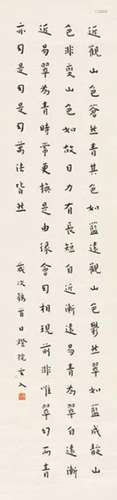 近觀山色蒼然青其色如藍遠觀山色鬱然翠如藍成靛山
色非變山色如故目力有長短自近漸遠易青為翠自遠漸
近易翠為青時常更換是由緣會幻相現前非唯翠幻而青
亦幻是幻是幻萬法皆然
歲次鶉首日燈院玄入